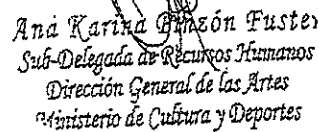 Ana Karina Pinzón Fuste
Sub-Delegada de Recursos Humanos
Dirección General de las Artes
Ministerio de Cultura y Deportes